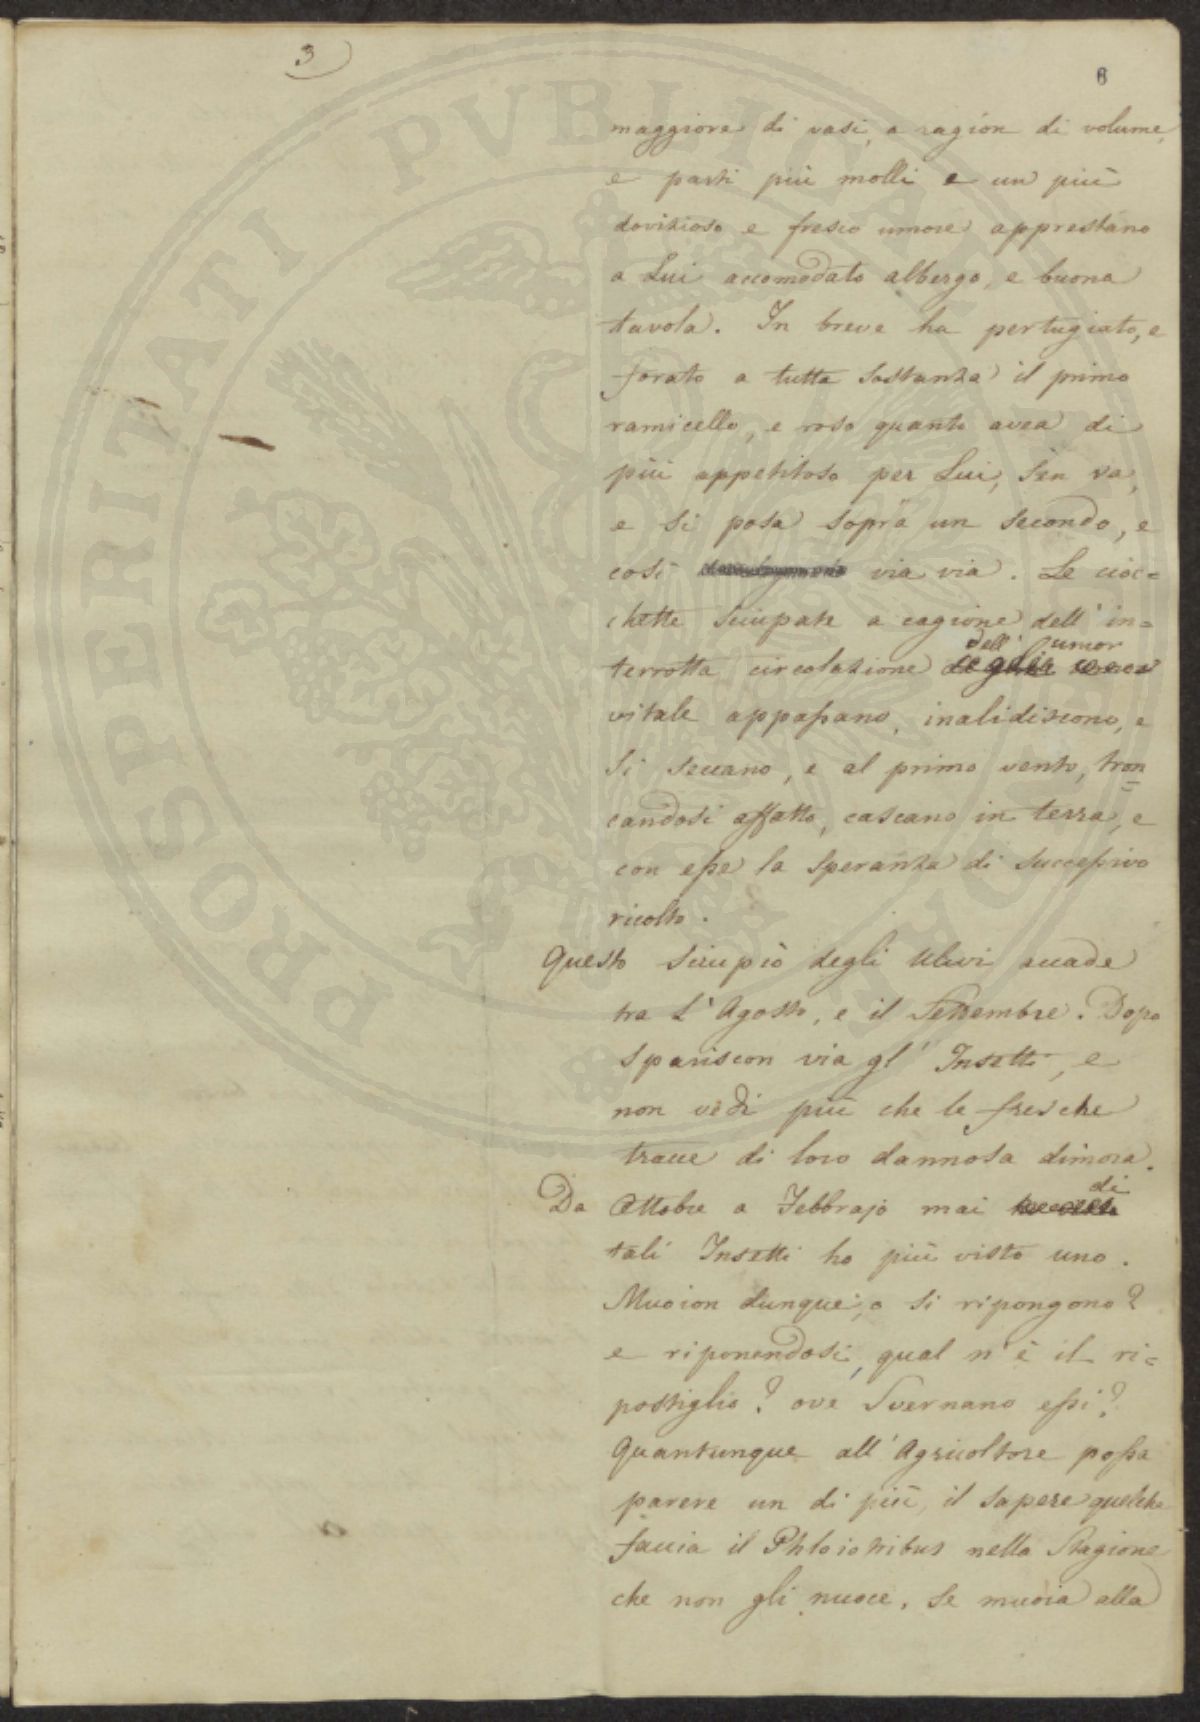 3
6
maggiore di vasi, a ragion di volume,
e parti più molli e un più
dovizioso e fresco umore apprestano
a Lui accomodato albergo, e buona
tavola. In breve ha pertugiato, e
forato a tutta sostanza il primo
ramicello, e roso quanto avea di
più appetitoso per Lui, sen va,
e si posa sopra un secondo, e
così via via. Le cioc=
chette sciupate a cagione dell' in=
terrotta circolazione dell' umor
vitale appassano, inalidiscono, e
si seccano, e al primo vento, tron=
candosi affatto, cascano in terra, e
con esse la speranza di successivo
ricolto.
Questo sciupio degli Ulivi accade
tra l' Agosto, e il Settembre. Dopo
spariscon via gl' Insetti, e
non vedi più che le fresche
tracce di loro dannosa dimora.
Da Ottobre a Febbrajo mai di
tali Insetti ho più visto uno.
Muoion dunque, o si ripongono?
e riponendosi, qual n' è il ri=
postiglio? ove svernano essi?
Quantunque all' Agricoltore possa
parere un di più, il sapere quelche
faccia il Phloiotribus nella Stagione
che non gli nuoce, se muoia alla
PROSPERITATI PVBLICAE